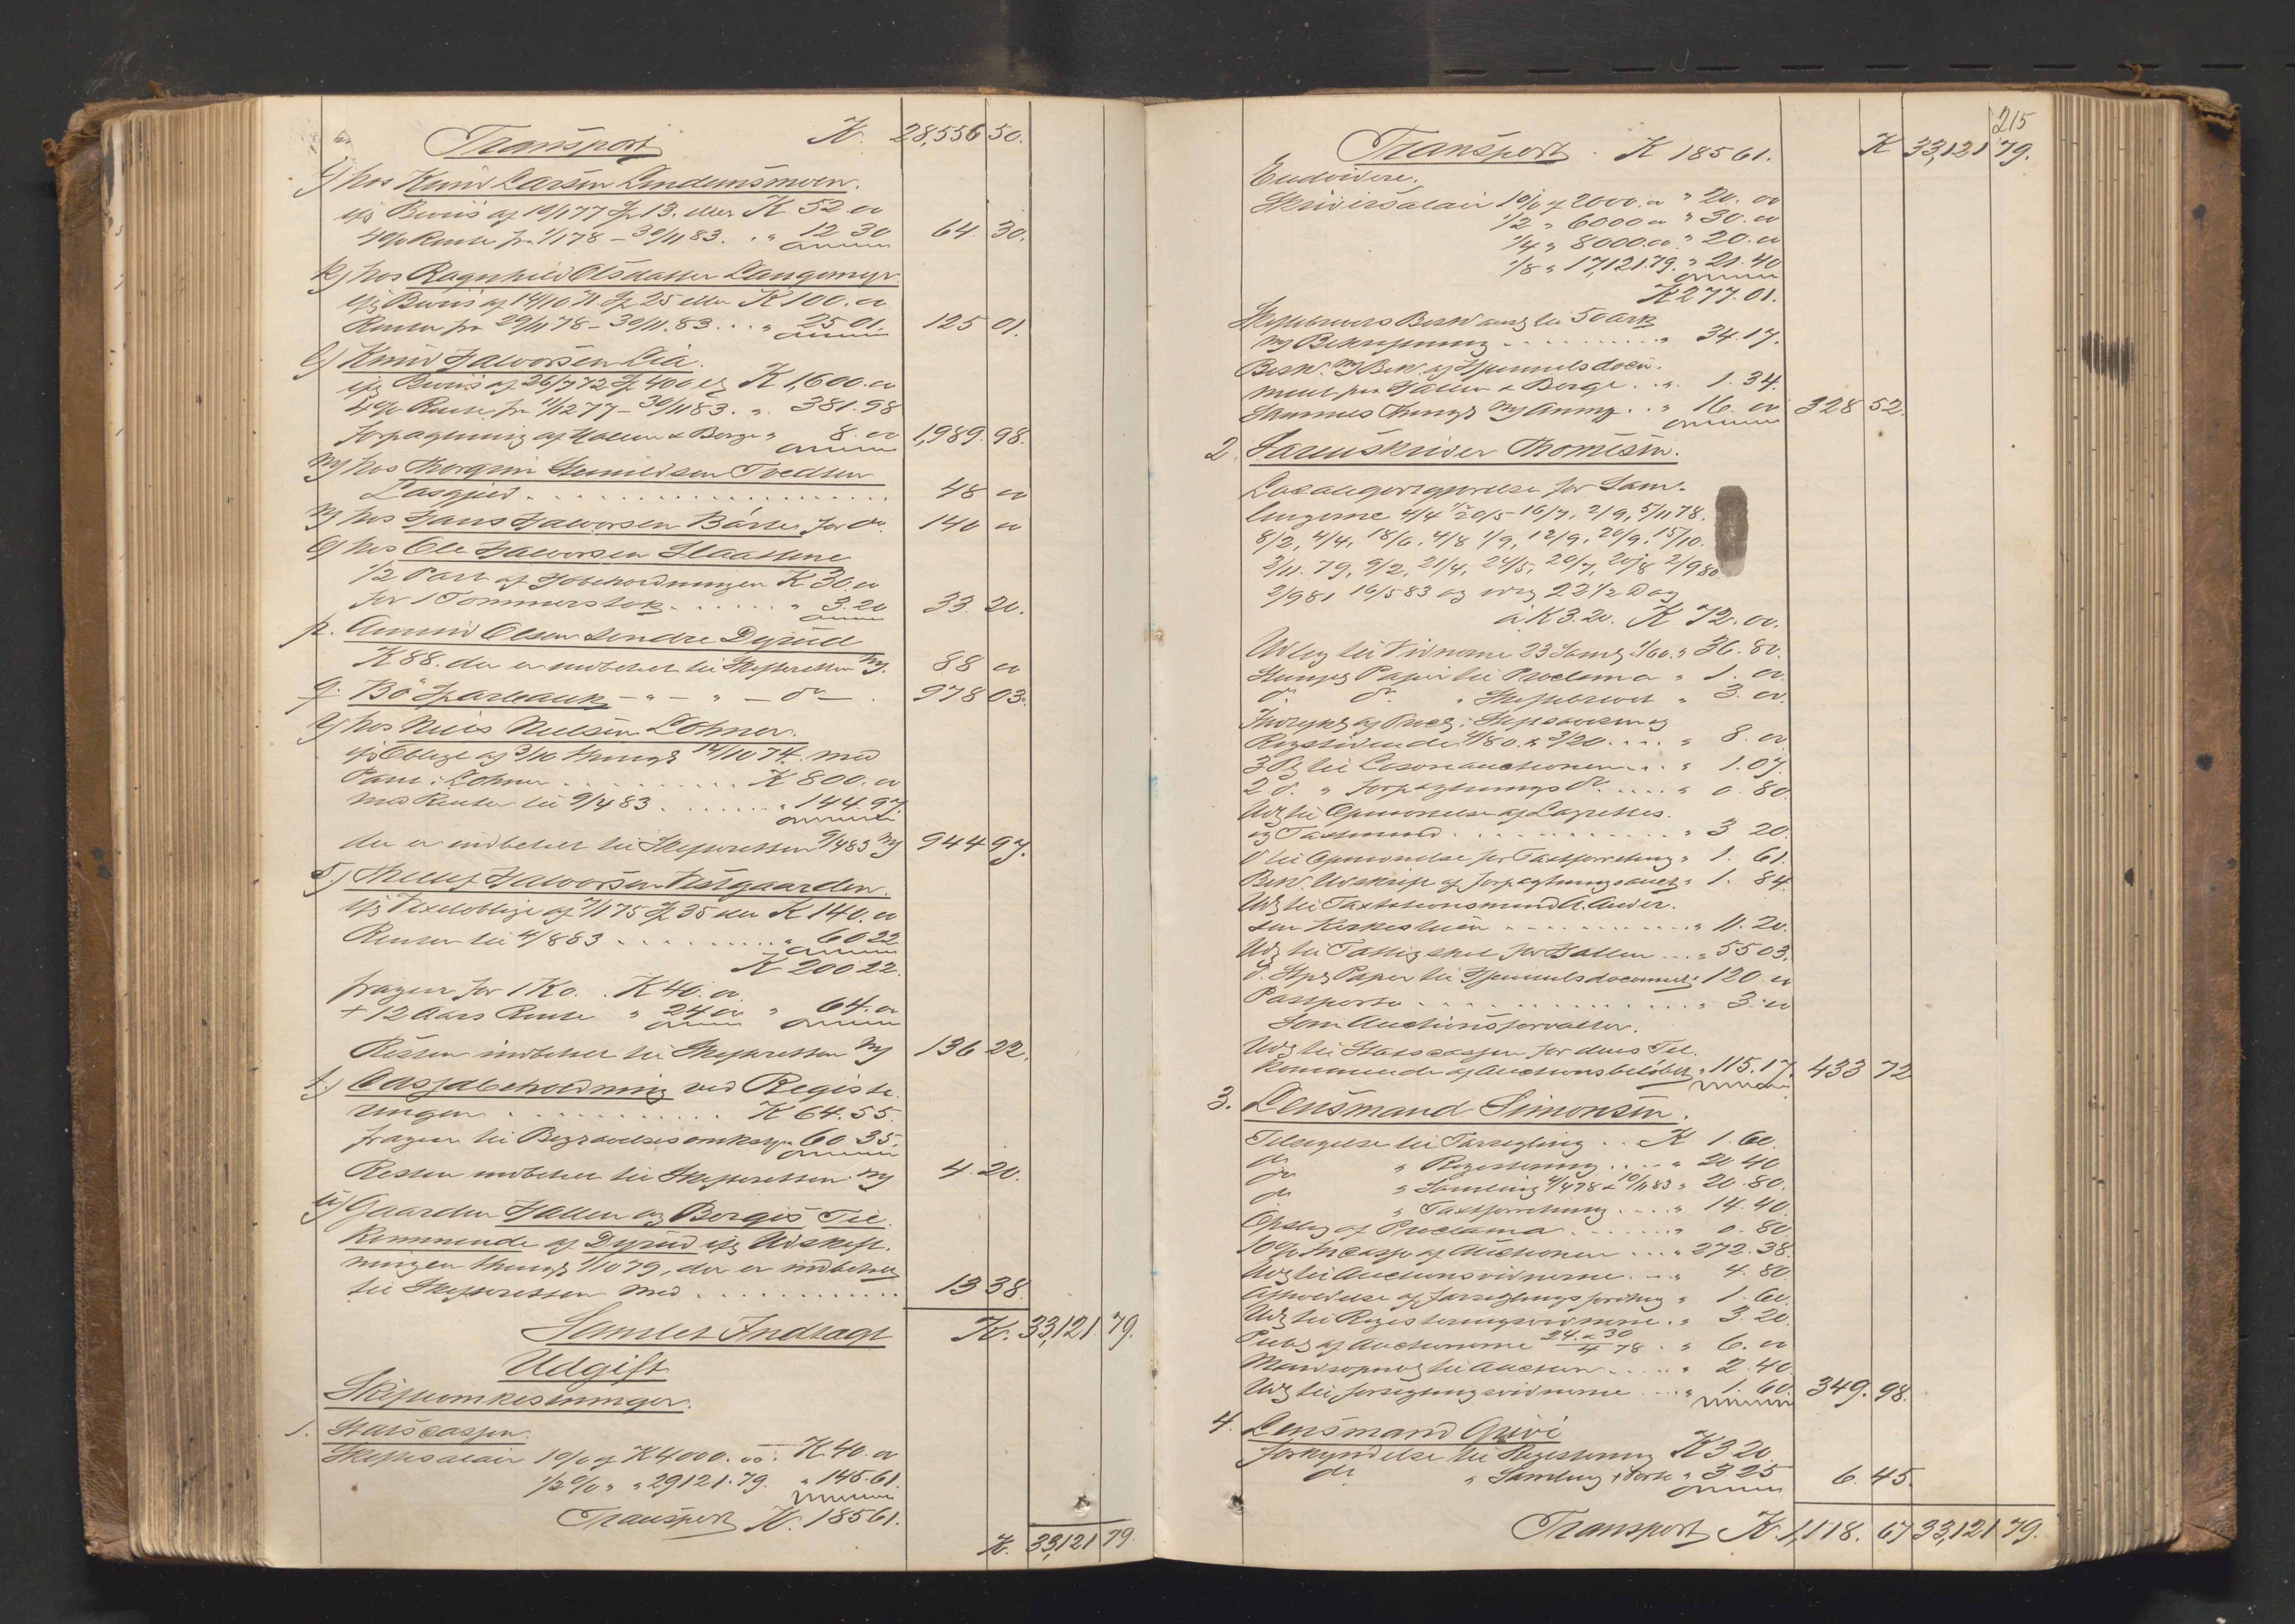 Transport K. 28,556 50.
i) hos Knud Larsen Lindemsmoen.
efg Beviis af 10/1 77 Sp 13. eller K 52. 00
4 % Rente fra 1/1 78 – 30/11 83. . " 12 30 64. 30.
k) hos Ragnhild Olsdatter Langemyr
efg Beviis af 14/10 71. Sp 25 eller K 100. 00
Renter fra 29/11 78 – 30/11. 83. . . " 25 01. 125 01.
l) Knud Halvorsen Lia.
efg Beviis af 26/7 72 Sp 400 el K 1,600. 00
4 % Rente fra 11/12 77 – 30/11 83. . " 381. 98
Forpagtning af Hallen & Berge " 8. 00 1,989. 98.
m) hos Thorgrim Gunildsen Tvedten
Løsgjæld . . . . . . 48 00
n) hos Hans Halvorsen Bårse for do. 140 00
o) hos Ole Halvorsen Slaattene
1/2 Part af K 30. 00
for 1 Tømmerstok . . . . . " 3. 20 33. 20.
p. Amund Olsen søndre Dyrud
K 88. der er indbetalt til Skifteretten m. 88 00
q. Bø Sparebank – " – " – do – . 978 03.
r) hos Niels Nielsen Lohner.
efg Oblig. af 3/10 thingl 14/10 74. med
Pant i Lohner . . . . . . K 800. 00
med Renter til 9/4 83 . . . . . . " 144. 97.
der er indbetalt til Skifteretten 9/4 83 m 944 97.
s.) Halvorsen Vestgaarden.
efg Vexelobligt. af 7/1 75 Sp 35 eller K 140. 00
Renter til 4/8 83 . . . . . . " 60 22
K 200 22.
fragaar for 1 Ko. . K 40. 00
+ 12 Aars Rente " 24 00 " 64. 00
Resten indbetalt til Skifteretten m 136 22.
t.) Cassabeholdning ved Registe-
ringen . . . . . . K 64. 55.
fragaar til Begravelsesomkostn " 60 35.
Resten indbetalt til Skifteretten m 4. 20.
u) Gaarden Hallen og Berges Til-
kommende af Dyrud efg Udskift-
ningen thingl 1/10 79, der er indbetalt
til Skifteretten med . . . . . . 13 38.
Samlet Indtægt K. 33,121 79.
Udgift
Skifteomkostninger.
1. Statscassen.
Skiftesalair 1 0/0 af K 4000. 00. K 40. 00
1/2 % " " 29121. 79. " 145. 61.
Transport K. 185 61.
K. 33,121 79.
215
Transport . K 185 61. K 33,121 79.
Endvidere.
Skriversalair 1 0/0 af 2000. 00 " 20. 00
1/2 " 6000 00 " 30. 00
1/4 " 8000. 00 " 20. 00
1/8 " 17,121. 79. " 21. 40
K 277. 01.
Skiftebrevets Besk anslg til 50 ark
m Bekræftning . . . . . . " 34. 17.
Besk. m Bek. af Hjemmelsdocu-
ment paa Hallen & Berge . . " 1. 34.
Sammes Thingl m Anmg . . " 16. 00 328 52.
2. Sorenskriver Thomesen.
Localgodtgjørelse for Sam-
lingerne 4/4 20/5 - 16/7, 2/9, 5/11 78.
8/2, 4/4, 18/6, 4/8 1/9, 12/9, 20/9, 15/10.
2/11. 79, 9/2, 21/4, 24/5, 20/7, 20/8 2/9 80.
2/9 81 16/5 83 og 22 1/2 Dag
à K 3. 20. K 72. 00.
Udlæg til Vidnerne 23 Saml 1/60. " 36. 80.
Stempl Papir til Proclama " 1. 00.
do do " Skiftebrevet " 3. 00.
Indrykg af Procl i Stiftsavisen og
Rigstidende 4/80. & 3/20. . . . " 8. 00
3 til Løsøreauctionen . . . " 1. 07.
2 do. " Forpagtnings do . . . . " 0. 80
Udl til Opnævnelse af Lagrettes-
og Taxtmænd . . . . . . " 3 20.
do til Opnævnelse for Taxtforretning " 1. 61.
Bek. Udskrift af Forpagtningsauct " 1. 84.
Udl til Taxtationsmand A. Ander-
sen Kirkestuen . . . . . . " 11. 20.
Udl til for Hallen . . . " 55 03.
do. Stpl Papir til Hjemmelsdocument " 120. 00
Postporto . . . . . . " 3. 00
Som Auctionsforvalter.
Udl til Statscassen for dens Til-
kommende af Auctionsbeløbet " 115. 17. 433 72
3. Lensmand Simonsen.
Tilsigelse til Forsegling . . K 1. 60.
do " Registrering . . . . " 20 40
do " Samling 4/4 78 & 10/11 83 " 20. 80.
do " Taxtforretning . . . . " 14. 40.
Opslag af Proclama . . . . . " 0. 80.
10 % Incasso af Auctionen . . . " 272. 38.
Udl til Auctionsvidnerne . . . " 4. 80
Afholdelse af Forseglingsforretng " 1. 60.
Udl til Registeringsvidnerne . " 3. 20.
Publ af Auctionerne 24. & 30/4 78 . " 6. 00
Mandsopnol til Auction . . . . . " 2. 40
Udl til Forseglingsvidnerne . . . " 1. 60. 349. 98.
4. Lensmand Grivi
Forkyndelse til Registering K 3 20.
do " Samling + Porto " 3. 25 6. 45.
Transport K. 1,118. 67 33,121 79.